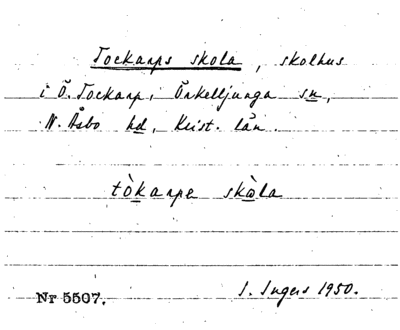 Tockarps skola, skolhus
i Ö. Tockarp, Örkelljunga sn,
N. Åsbo hd, Krist. län.
tòkarpa skὼla
Nr 5507.
I. Ingers 1950.